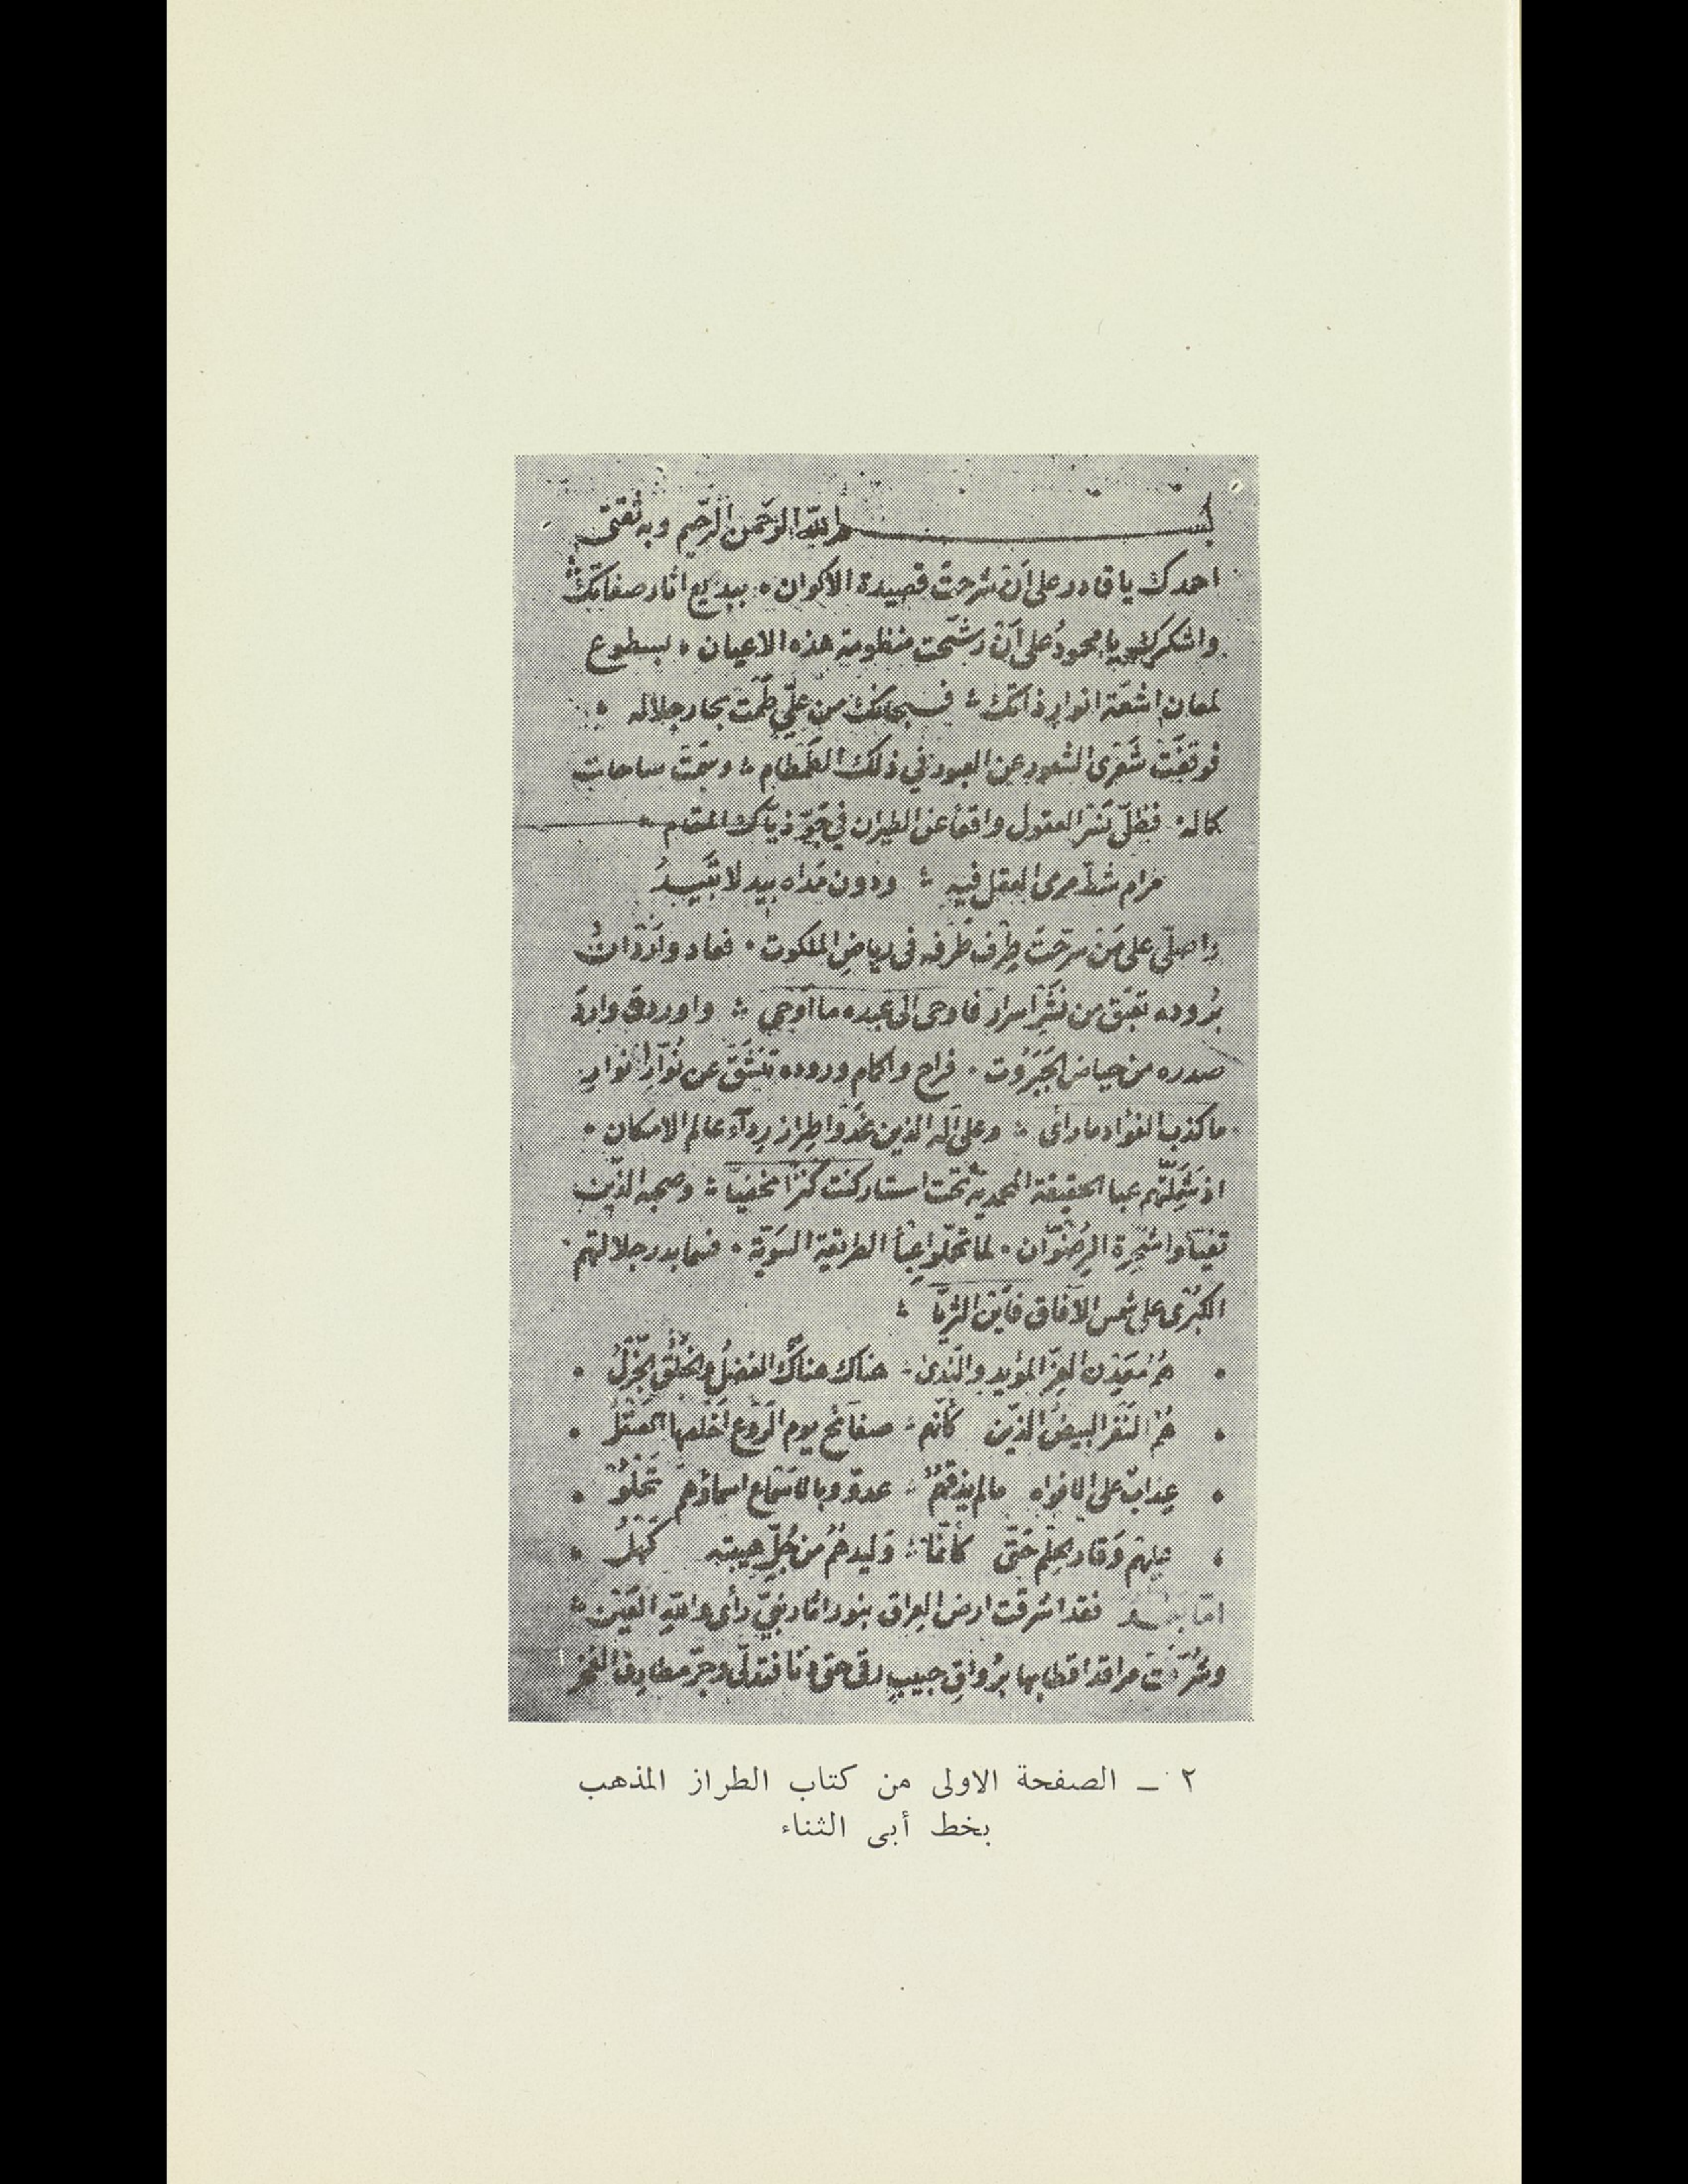 بسم الله الرحمن الرحيم وبه ثقتي
احمدك يا قادر على أن شرحت قصيدة الاكوان ٠ ببديع اثار صفاتك
واشكرك يا محمودُ على أن رشّحت منظومة هذه الاعيان ، بسطوع
لمعان اشعّة انوار ذاتك ؞ فسبحانك من عليّ طَمَت بحار جلاله ؞
فوقفَتْ شِعْرى الشعور عن العبور في ذلك الطَمْطام ؞ وسمَتْ ساحات
كماله ٠ فظلّ نَسْر العقول واقفًا عن الطيران في جَوّ ذيّاك المقام ؞
مرام شطّ مرمى العقل فيه ؞ ودون مَداه بيد لا تَبيدُ
واصلّي على مَنْ سرّحتَ طِرْف طَرفه في رياض الملكوت ٠ فعاد وازرّان
بُروده تعبّق من نَشْر اسرار فاوحى الى عبده ما أوحى ؞ واوردتَ وارد
صدره من حياض الجَبَرُوت ٠ فراح واكمام وروده تنشَقّ عن نُوّار انوار
ما كذب الفؤاد ما رأى ؞ وعلى آله الذين غدَوا طِراز رِدآء عالم الامكان ٠
اذ شَمِلَتْهم عبا الحقيقة المحمدية تحت استار كنت كنزًا مخفيّا ؞ وصحبه الذين
تفيّأوا شجرة الرضْوان ٠ لما تحمّلوا عِبْأ الطريقة السَويّة ٠ فسما بدر جلالتهم
الكبْرى على شمس الآفاق فأين الثريّا ؞
٠ هُمُ مَعْدِن العِزّ المؤيد والنّدى ؞ هناك هناك الفضلُ والخُلُق الجَزْلُ ٠
٠ هُمُ النَفَر البيض الذين كأنهم ؞ صفائح يوم الرَوْع اخلصها الصَقْلُ ٠
٠ عِذابٌ على الافواه ما لم يذقهمُ ؞ عدوّ وبالافواه اسماؤهم تَحْلُو ٠
، عليهم وَقار الحِلم حَتّى كأنّما ؞ وَليدهُمُ من جُلّ هيبته كهْلُ ٠
امّا بعـد فقد اشرقت ارض العِراق بنور اثار نبيّ رأى والله العَيْن ؞
وشُرّفَتْ مراقد اقطابها برُواقِ حبيبٍ رقى حتى دنا فتدلّى وجرّ مطارف الفخر
٢ ــ الصفحة الاولى من كتاب الطراز المذهب
بخط أبى الثناء